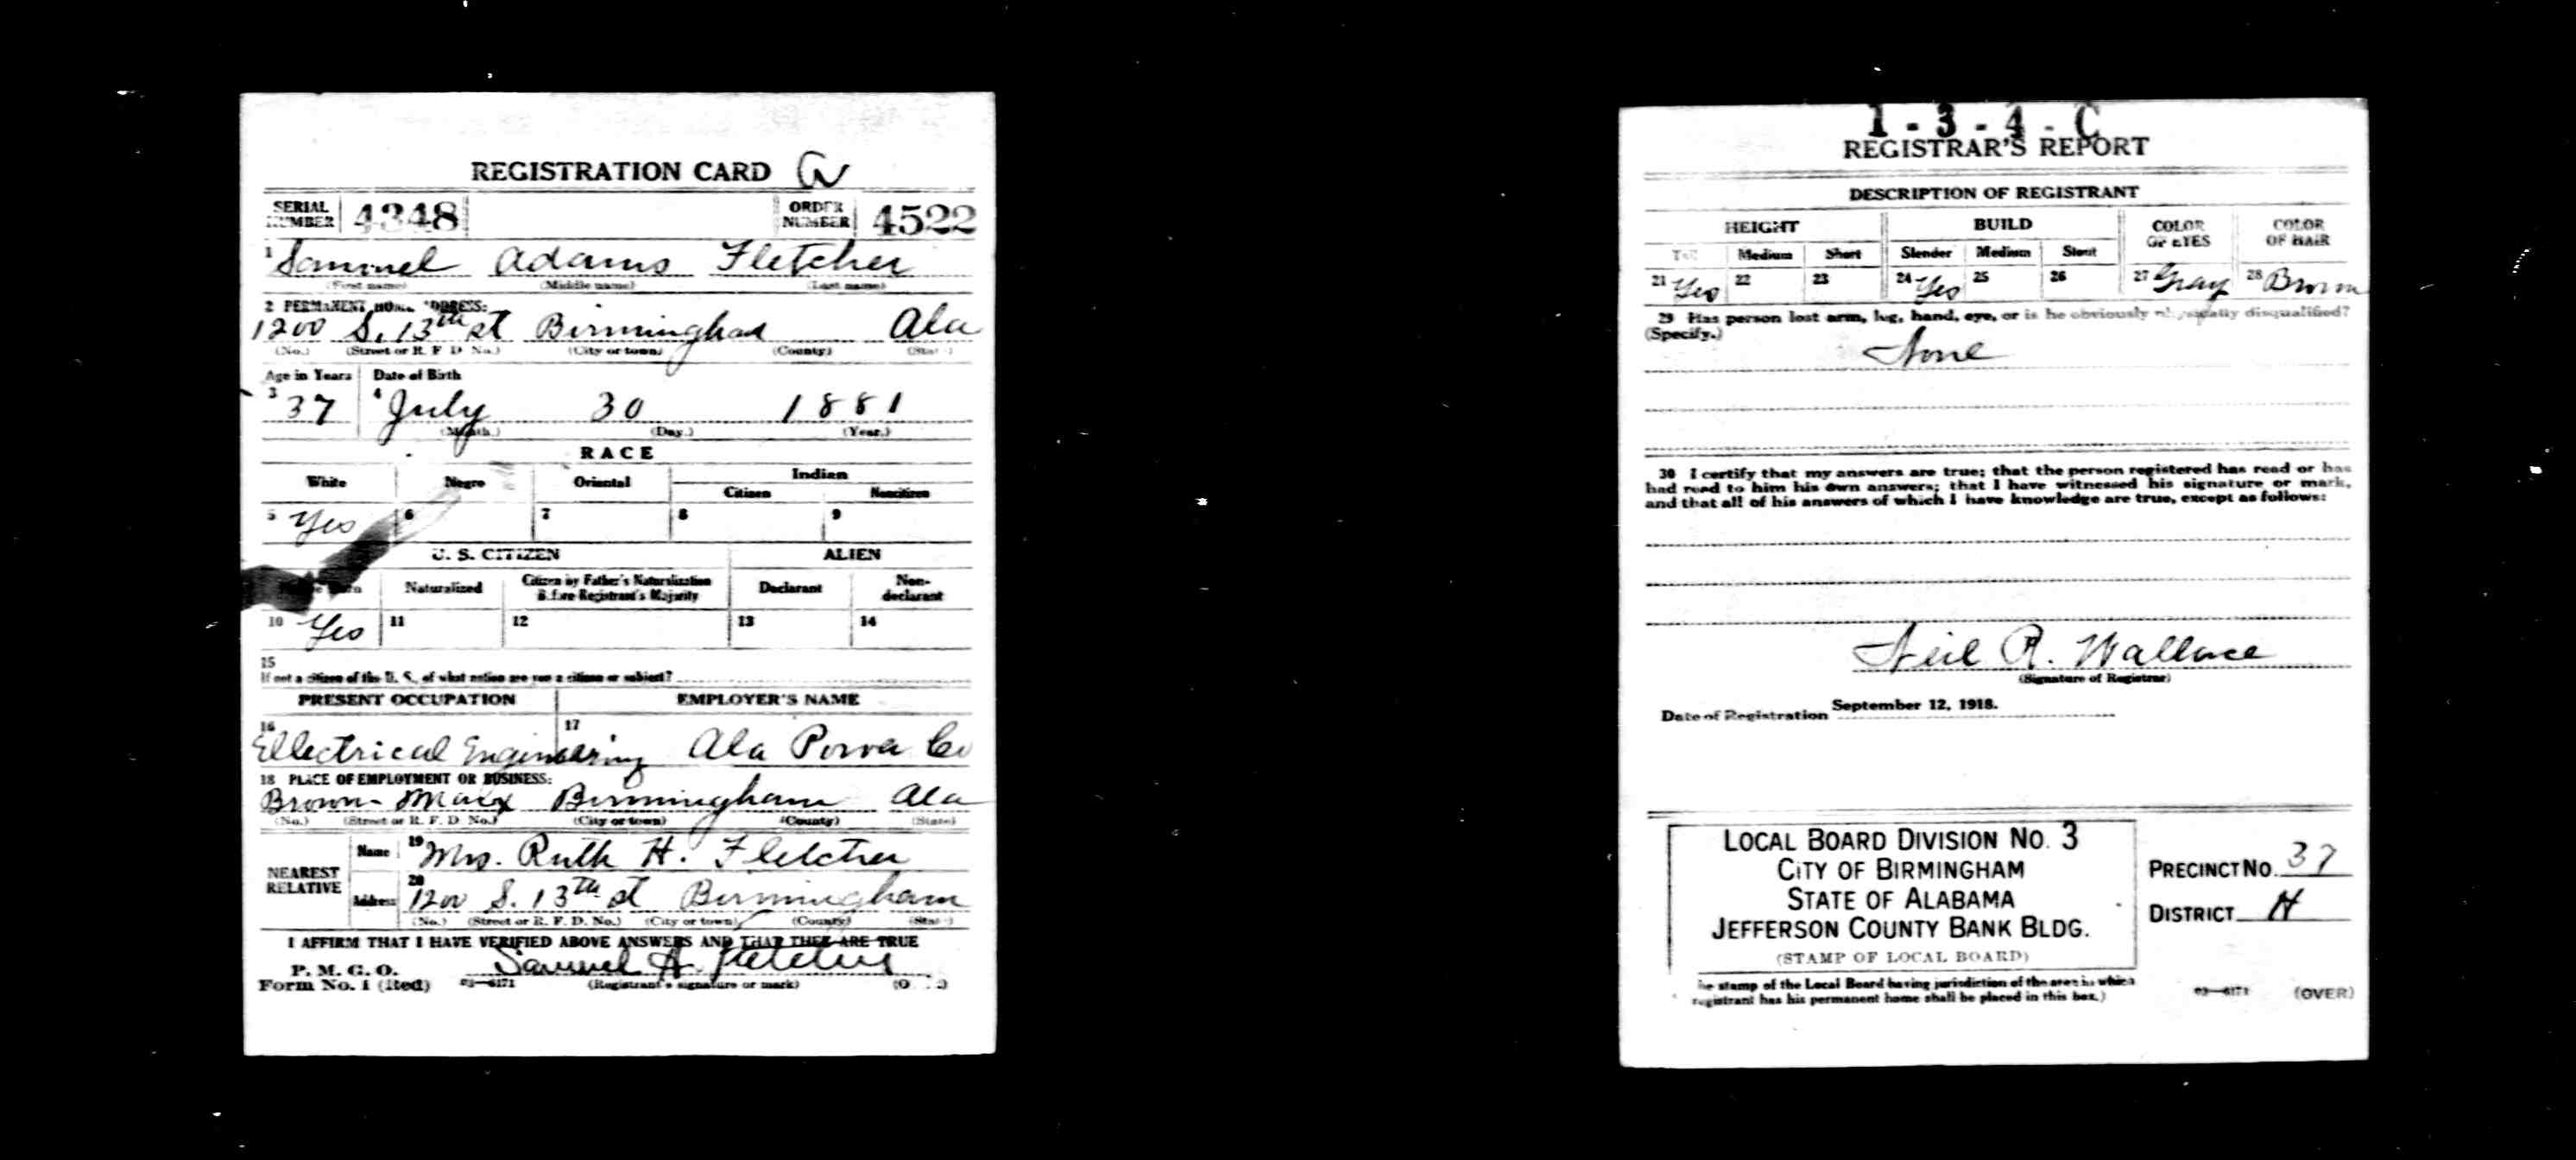 REGISTRATION CARD
SERIAL NUMBER 4348 ORDER NUMBER 4522
1 Samuel Adams Fletcher
(First name) (Middle name) (Last name)
2 PERMANENT HOME ADDRESS:
1200 S. 13th st Birmingham Ala
(No.) (Street or R. F. D. No.) (City or town) (County) (State)
Age in Years Date of Birth
3 37 4 July 30 1881
(Month.) (Day.) (Year.)
RACE
White Negro Oriental Indian
Citizen Noncitizen
5 Yes 6 7 8 9
U. S. CITIZEN ALIEN
Naturalized Citizen by Father's Naturalization Before Registrant's Majority Declarant Non-declarant
10 Yes 11 12 13 14
15
If not a citizen of the U. S., of what nation are you a citizen or subject?
PRESENT OCCUPATION EMPLOYER'S NAME
16 17
Ellectrical Engineering Ala Power Co
18 PLACE OF EMPLOYMENT OR BUSINESS:
Brown-Marx Birmingham Ala
(No.) (Street or R. F. D. No.) (City or town) (County) (State)
NEAREST RELATIVE
Name 19 Mrs. Ruth H. Fletcher
Address 20 1200 S. 13th st Birmingham
(No.) (Street or R. F. D. No.) (City or town) (County) (State)
I AFFIRM THAT I HAVE VERIFIED ABOVE ANSWERS AND THAT THEY ARE TRUE
P. M. G. O.
Form No. 1 (Red) 03—6171 Samuel A. Fletcher
(Registrant's signature or mark)
1 - 3 - 4 - C
REGISTRAR'S REPORT
DESCRIPTION OF REGISTRANT
HEIGHT BUILD COLOR OF EYES COLOR OF HAIR
Tall Medium Short Slender Medium Stout
21 Yes 22 23 24 Yes 25 26 27 Gray 28 Brown
29 Has person lost arm, leg, hand, eye, or is he obviously physically disqualified?
(Specify.)
None
30 I certify that my answers are true; that the person registered has read or has
had read to him his own answers; that I have witnessed his signature or mark,
and that all of his answers of which I have knowledge are true, except as follows:
Neil R. Wallace
(Signature of Registrar)
Date of Registration September 12, 1918.
LOCAL BOARD DIVISION NO. 3
CITY OF BIRMINGHAM
STATE OF ALABAMA
JEFFERSON COUNTY BANK BLDG.
(STAMP OF LOCAL BOARD)
PRECINCT NO. 37
DISTRICT H
he stamp of the Local Board having jurisdiction of the area in which
registrant has his permanent home shall be placed in this box.)
03—6171 (OVER)